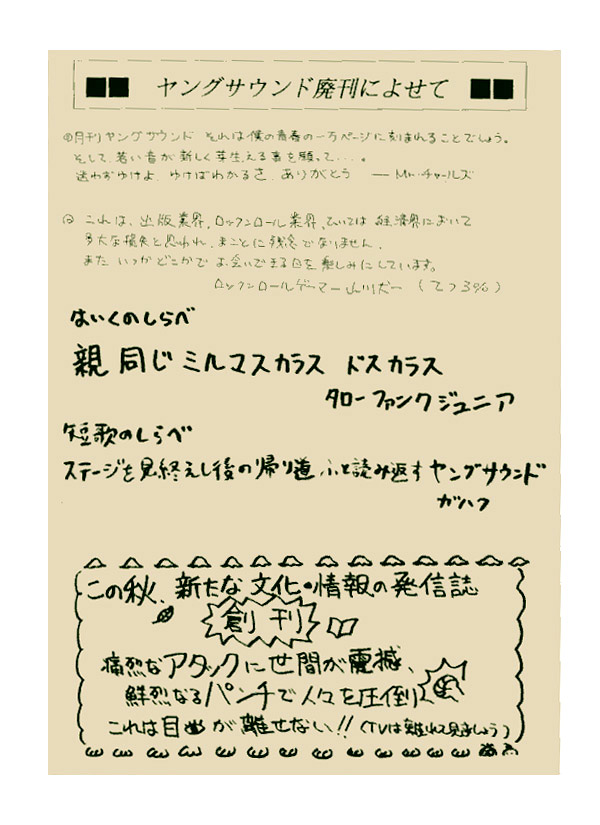 ■■ ヤングサウンド廃刊によせて ■■
◎月刊ヤングサウンド それは僕の青春の一万ページに刻まれることでしょう。
そして、若い音が新しく芽生える事を願って・・・。
迷わずゆけよ、ゆけばわかるさ、ありがとう ― Mr.チャールズ
◎ これは、出版業界、ロックンロール業界、ひいては 経済界において
多大な損失と思われ、まことに残念でなりません。
また いつかどこかで お会いできる日を楽しみにしています。
ロックンロールゲーマー山川犬一
はいくのしらべ
親 同じ ミルマスカラス ドスカラス
タローファンクジュニア
短歌のしらべ
ステージを見終えし後の帰り道 ふと読み返す ヤングサウンド
ガハク
この秋、新たな文化・情報の発信誌
創刊
痛烈なアタックに世間が震撼、
鮮烈なるパンチで人々を圧倒
これは目が離せない!!(TVは離れて見ましょう)